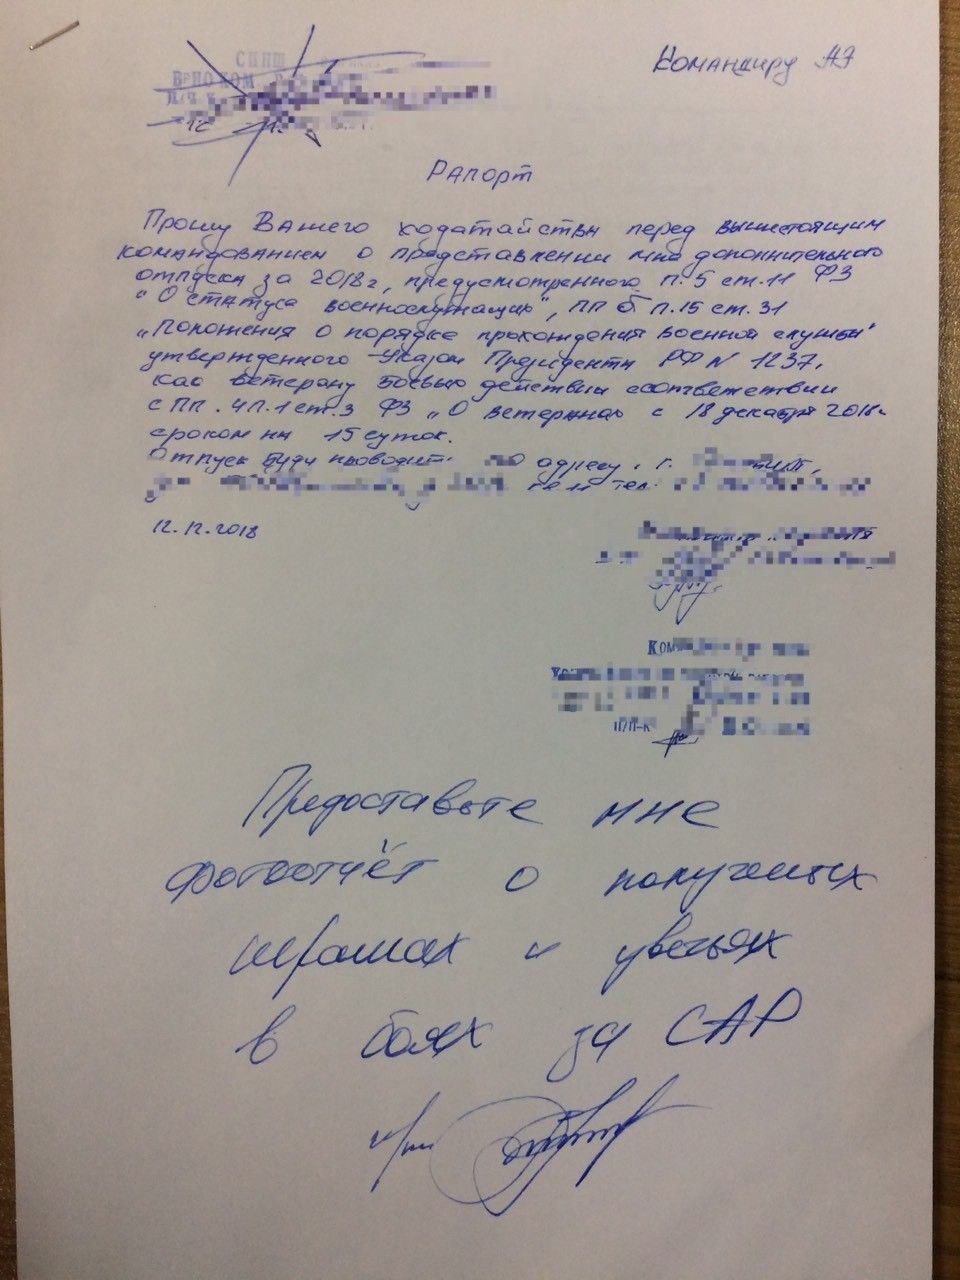 Командиру АЭ
Рапорт
Прошу Вашего ходатайства перед вышестоящим
командованием о представлении мне дополнительного
отпуска за 2018г, предусмотренного п.5 ст.11 ФЗ
"О статусе военнослужащих", ПП б П.15 ст.31
"Положения о порядке прохождения военной службы"
утвержденного Указом Президента РФ N 1237.
как ветерану боевых действий соответствии
с ПП. 4П.1 ст.3 ФЗ "О ветеранах с 18 декабря 2018г
сроком на 15 суток.
Отпуск буду проводить по адресу: г.
тел:
12.12.2018
П/П-К
Предоставьте мне
фотоотчёт о полученных
шрамах и увечьях
в боях за САР